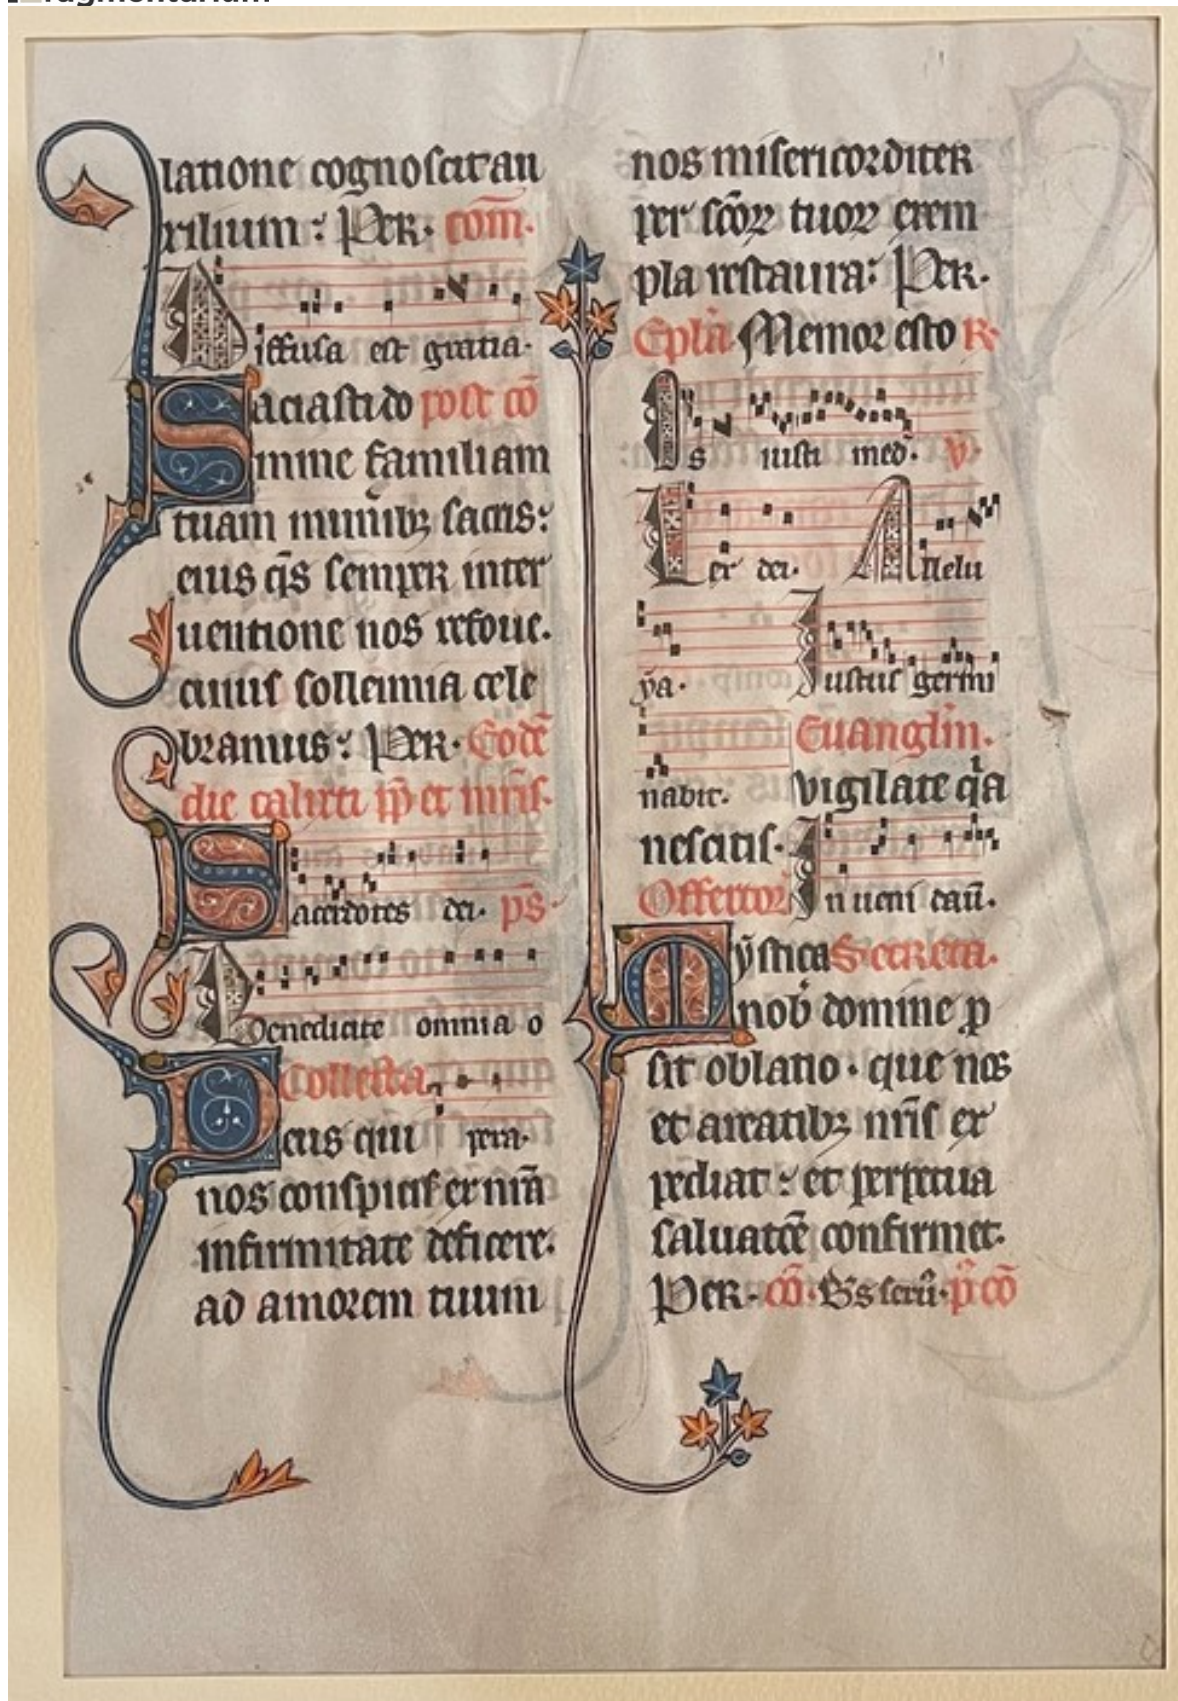 latione cognoscat au
xilium : Per · com̄ ·
Diffusa est gratia ·
Saciasti do post cō
mine familiam
tuam munīb₉ sacris :
eius q̄s semper inter
uentione nos refoue ·
cuius sollemnia cele
bramus : Per · Eodē
die calixti pp̄ et mr̄is ·
Sacerdotes dei · ps̄ ·
Benedicite omnia o
Collecta pera ·
Deus qui
nos conspicis ex nr̄a
infirmitate deficere ·
ad amorem tuum
nos misericorditer
per sc̄oꝝ tuoꝝ exem
pla restaura : Per ·
Ep̄la Memor esto R ·
Os iusti med̄ · v̄ ·
Lex dei · Allelu
ya · Iustus germi
nabit · Euangliū ·
vigilate qͣa
nescitis ·
Offertoꝝ Inueni dauͩ ·
Mystica Secreta ·
nob̄ domine ꝓ
sit oblatio · que nos
et a reatibꝫ nr̄is ex
pediat : et perpetua
saluatōē confirmet ·
Per · cō · B̄s seruꝰ · p̄ cō